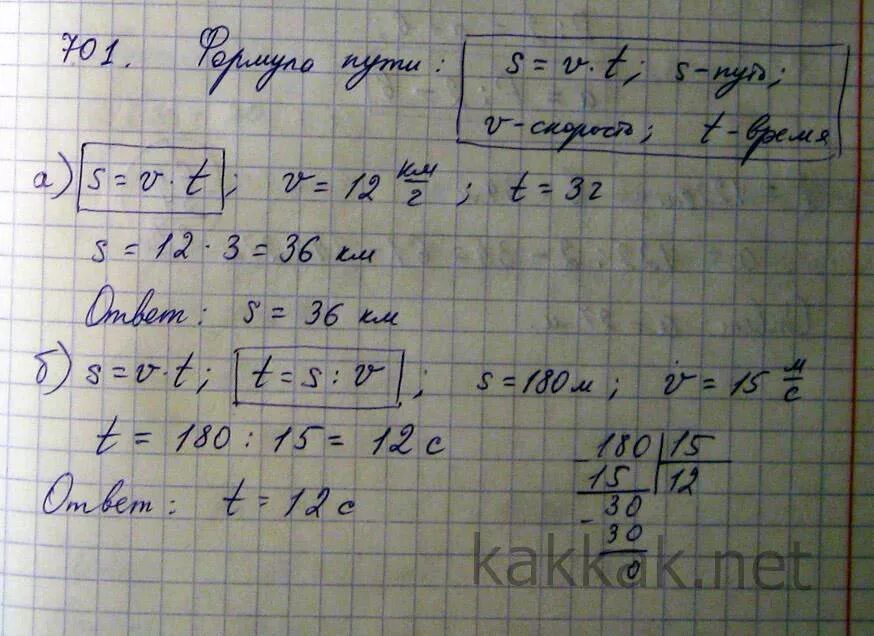 701. Формула пути: s = v · t; s - путь;
v - скорость; t - время
а) s = v · t; v = 12 км/г; t = 3г
s = 12 · 3 = 36 км
Ответ: s = 36 км
б) s = v · t; t = s : v; s = 180 м; v = 15 м/с
t = 180 : 15 = 12 с
Ответ: t = 12 с
180 | 15
- 15 | 12
30
- 30
0
kakkak.net